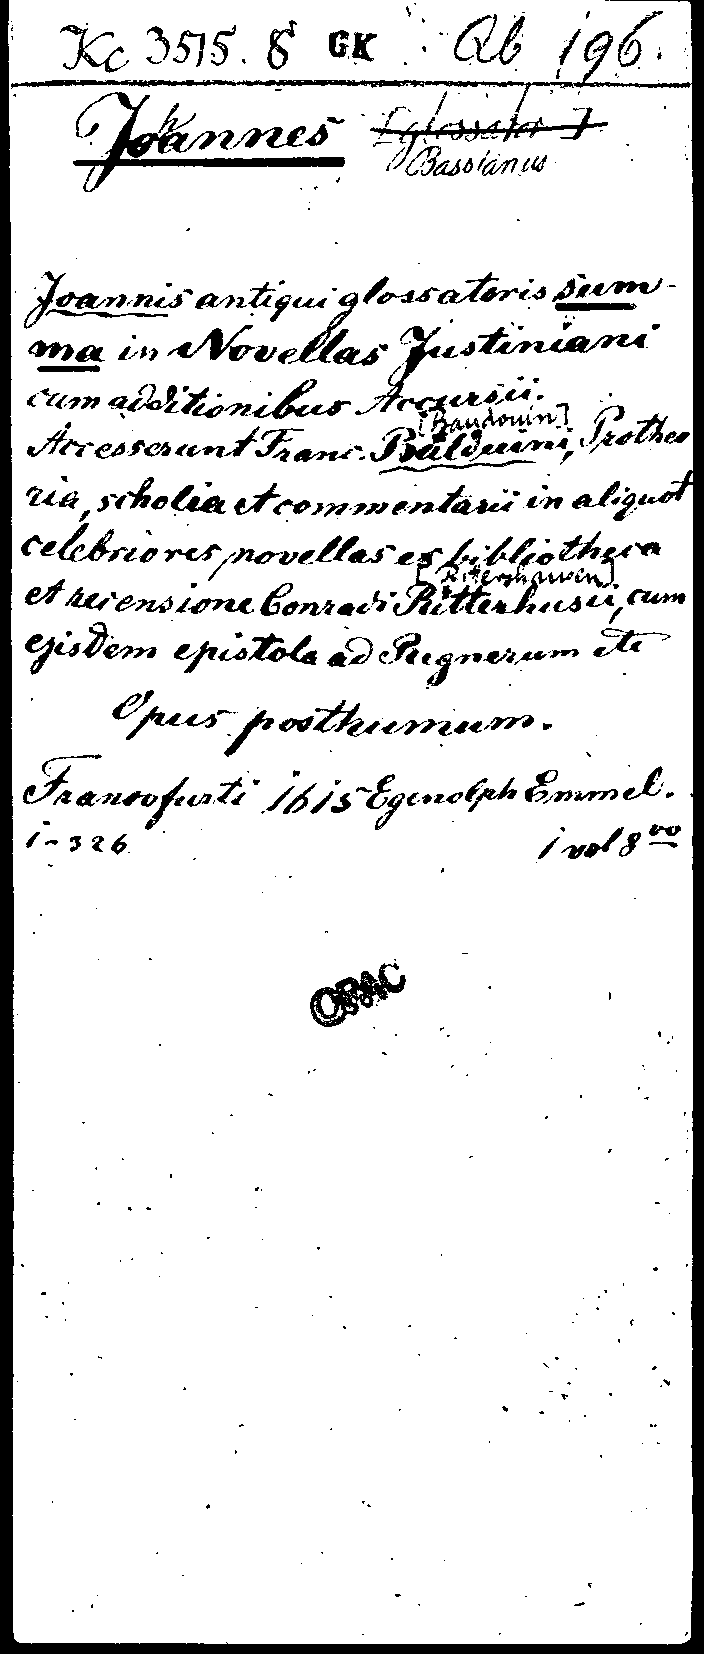 Kc 3515. 8 GK Qb 196.
Johannes [glossator]
Bassianus
Joannis antiqui glossatoris sum-
ma in Novellas Justiniani
cum additionibus Accursii.
[Baudouin]
Accesserunt Franc. Balduini, Protheo
ria, scholia et commentarii in aliquot
celebriores, novellas ex bibliotheca
[Rittershausen]
et recensione Conradi Ritterhusii, cum
ejisdem epistola ad Pregnerum etc
Opus posthumum.
Francofurti 1615 Egenolph Emmel.
1-326 1 vol 8vo
OPAC